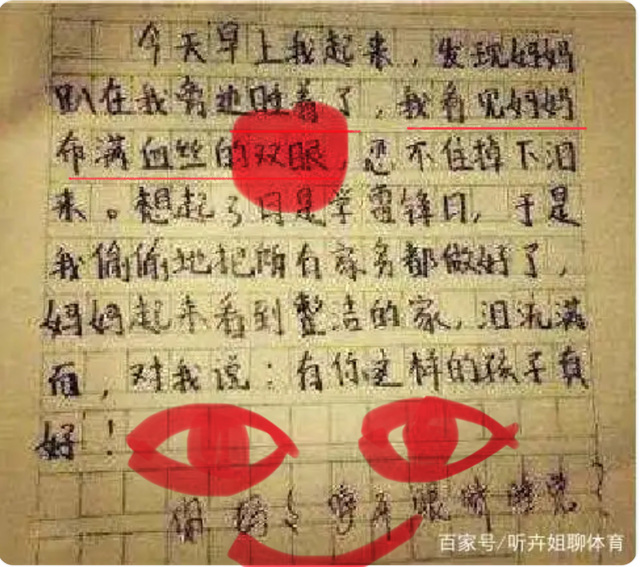 今天早上我起来，发现妈妈
趴在我旁边睡着了，我看见妈妈
布满血丝的双眼，忍不住掉下泪
来。想起了日是学雷锋日，于是
我偷偷地把所有家务都做好了，
妈妈起来看到整洁的家，泪流满
面，对我说：有你这样的孩子真
好！
妈 开眼睛睡觉？
百家号/听卉姐聊体育